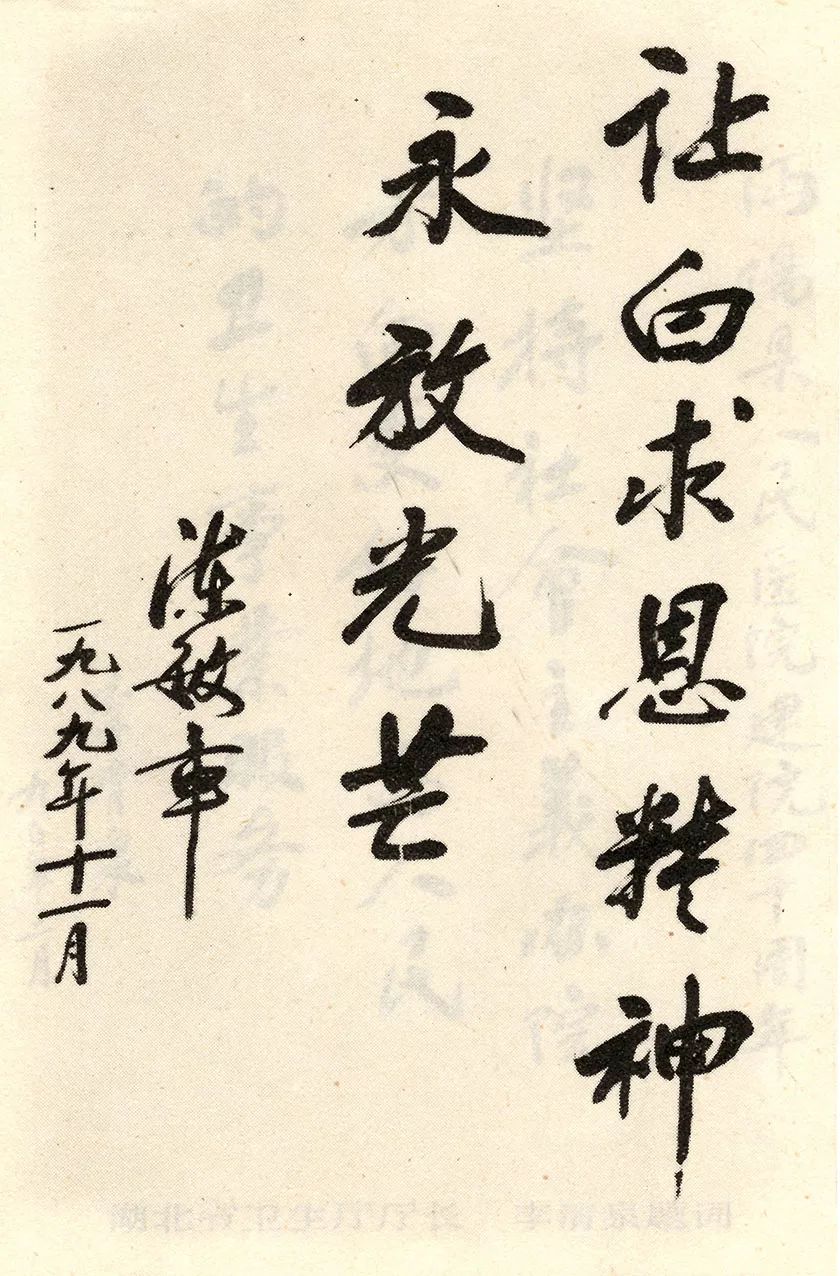 让白求恩精神
永放光芒
陈敏章
一九八九年十一月